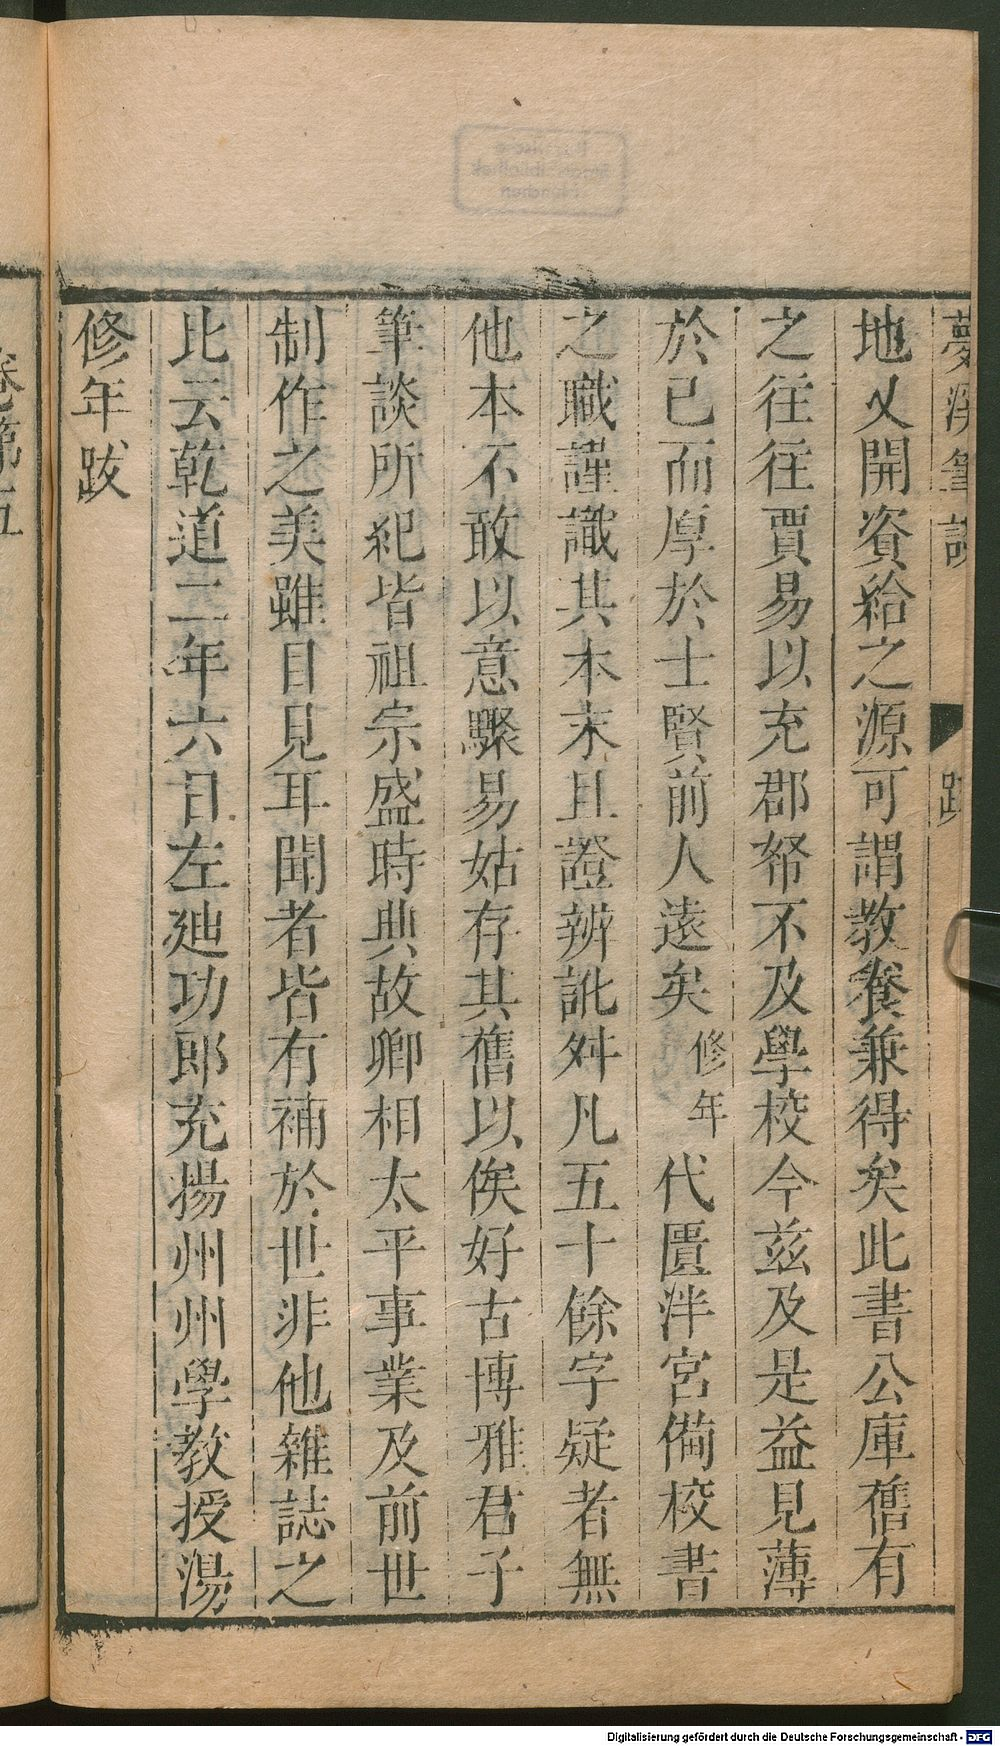 夢溪筆談
跋
地又開資給之源可謂教養兼得矣此書公庫舊有
之往往賈易以充郡帑不及學校今茲及是益見薄
於已而厚於士賢前人遠矣修年代匱泮宮俻校書
之職謹識其本末且證辨訛舛凡五十餘字疑者無
他本不敢以意驟易姑存其舊以俟好古博雅君子
筆談所紀皆祖宗盛時典故卿相太平事業及前世
制作之美雖目見耳聞者皆有補於世非他雜誌之
比云乾道二年六日左廸功郎充揚州州學教授湯
修年跋
卷第五
Digitalisierung gefördert durch die Deutsche Forschungsgemeinschaft - DFG